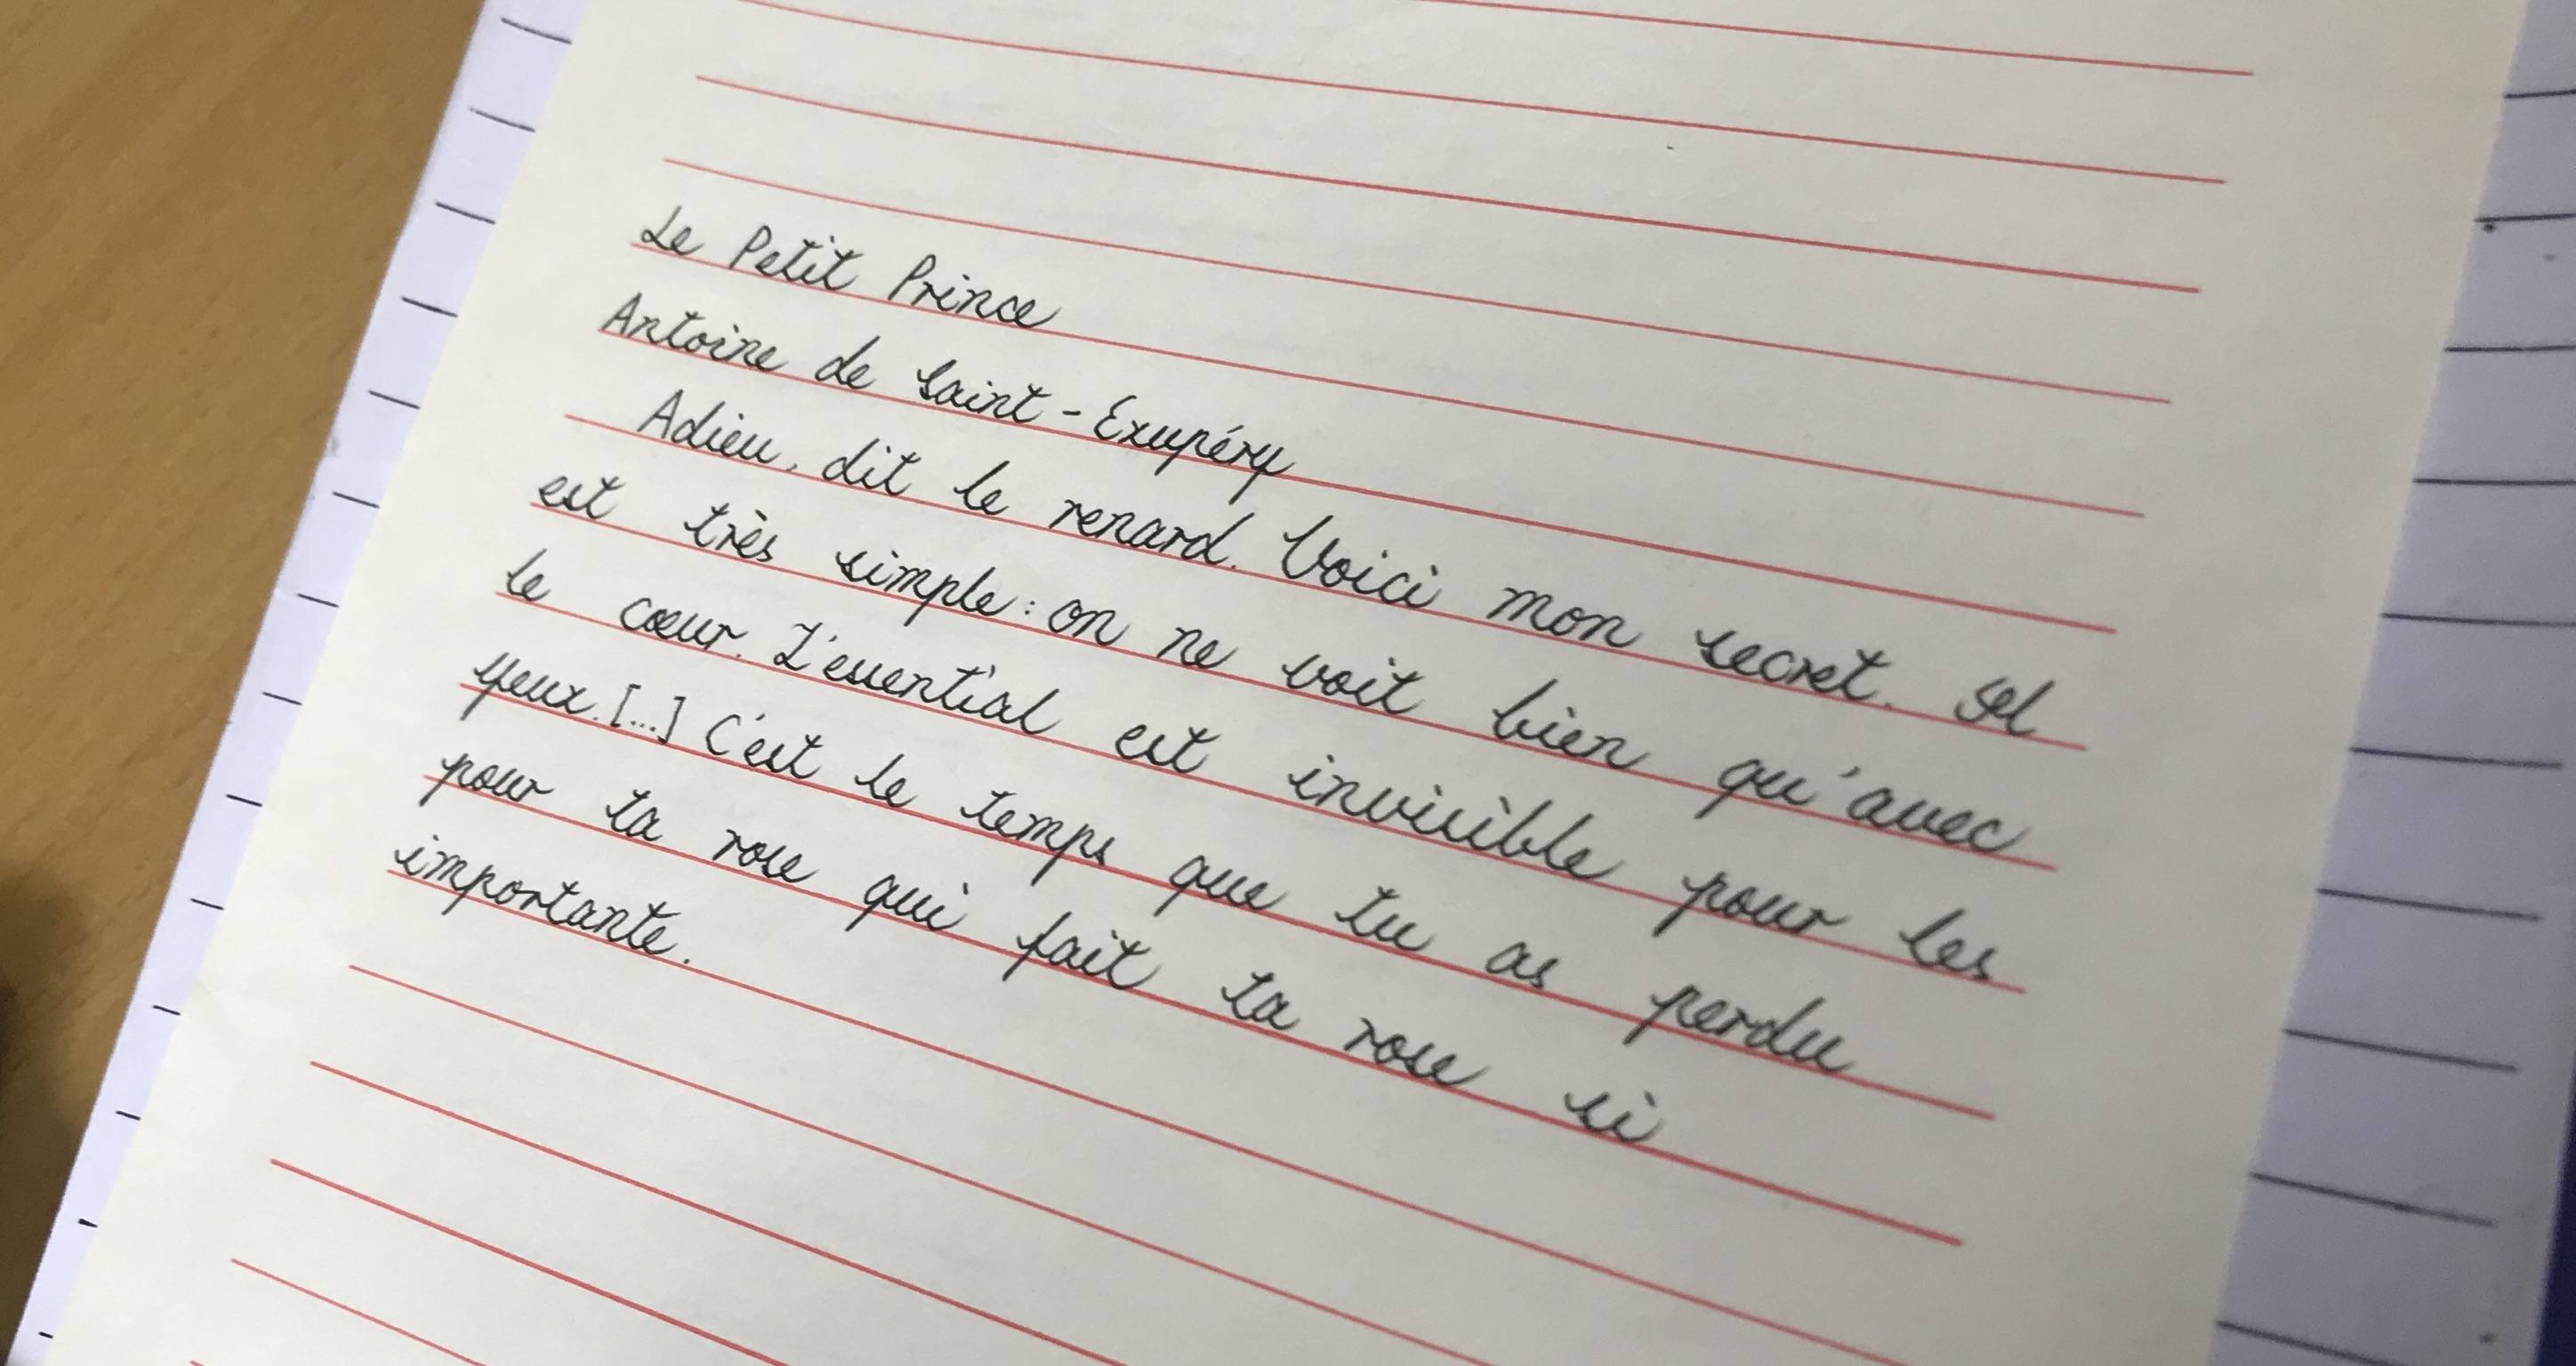 Le Petit Prince
Antoine de Saint-Exupéry
Adieu, dit le renard. Voici mon secret. Il
est très simple : on ne voit bien qu'avec
le cœur. L'essential est invisible pour les
yeux. [...] C'est le temps que tu as perdu
pour ta rose qui fait ta rose si
importante.